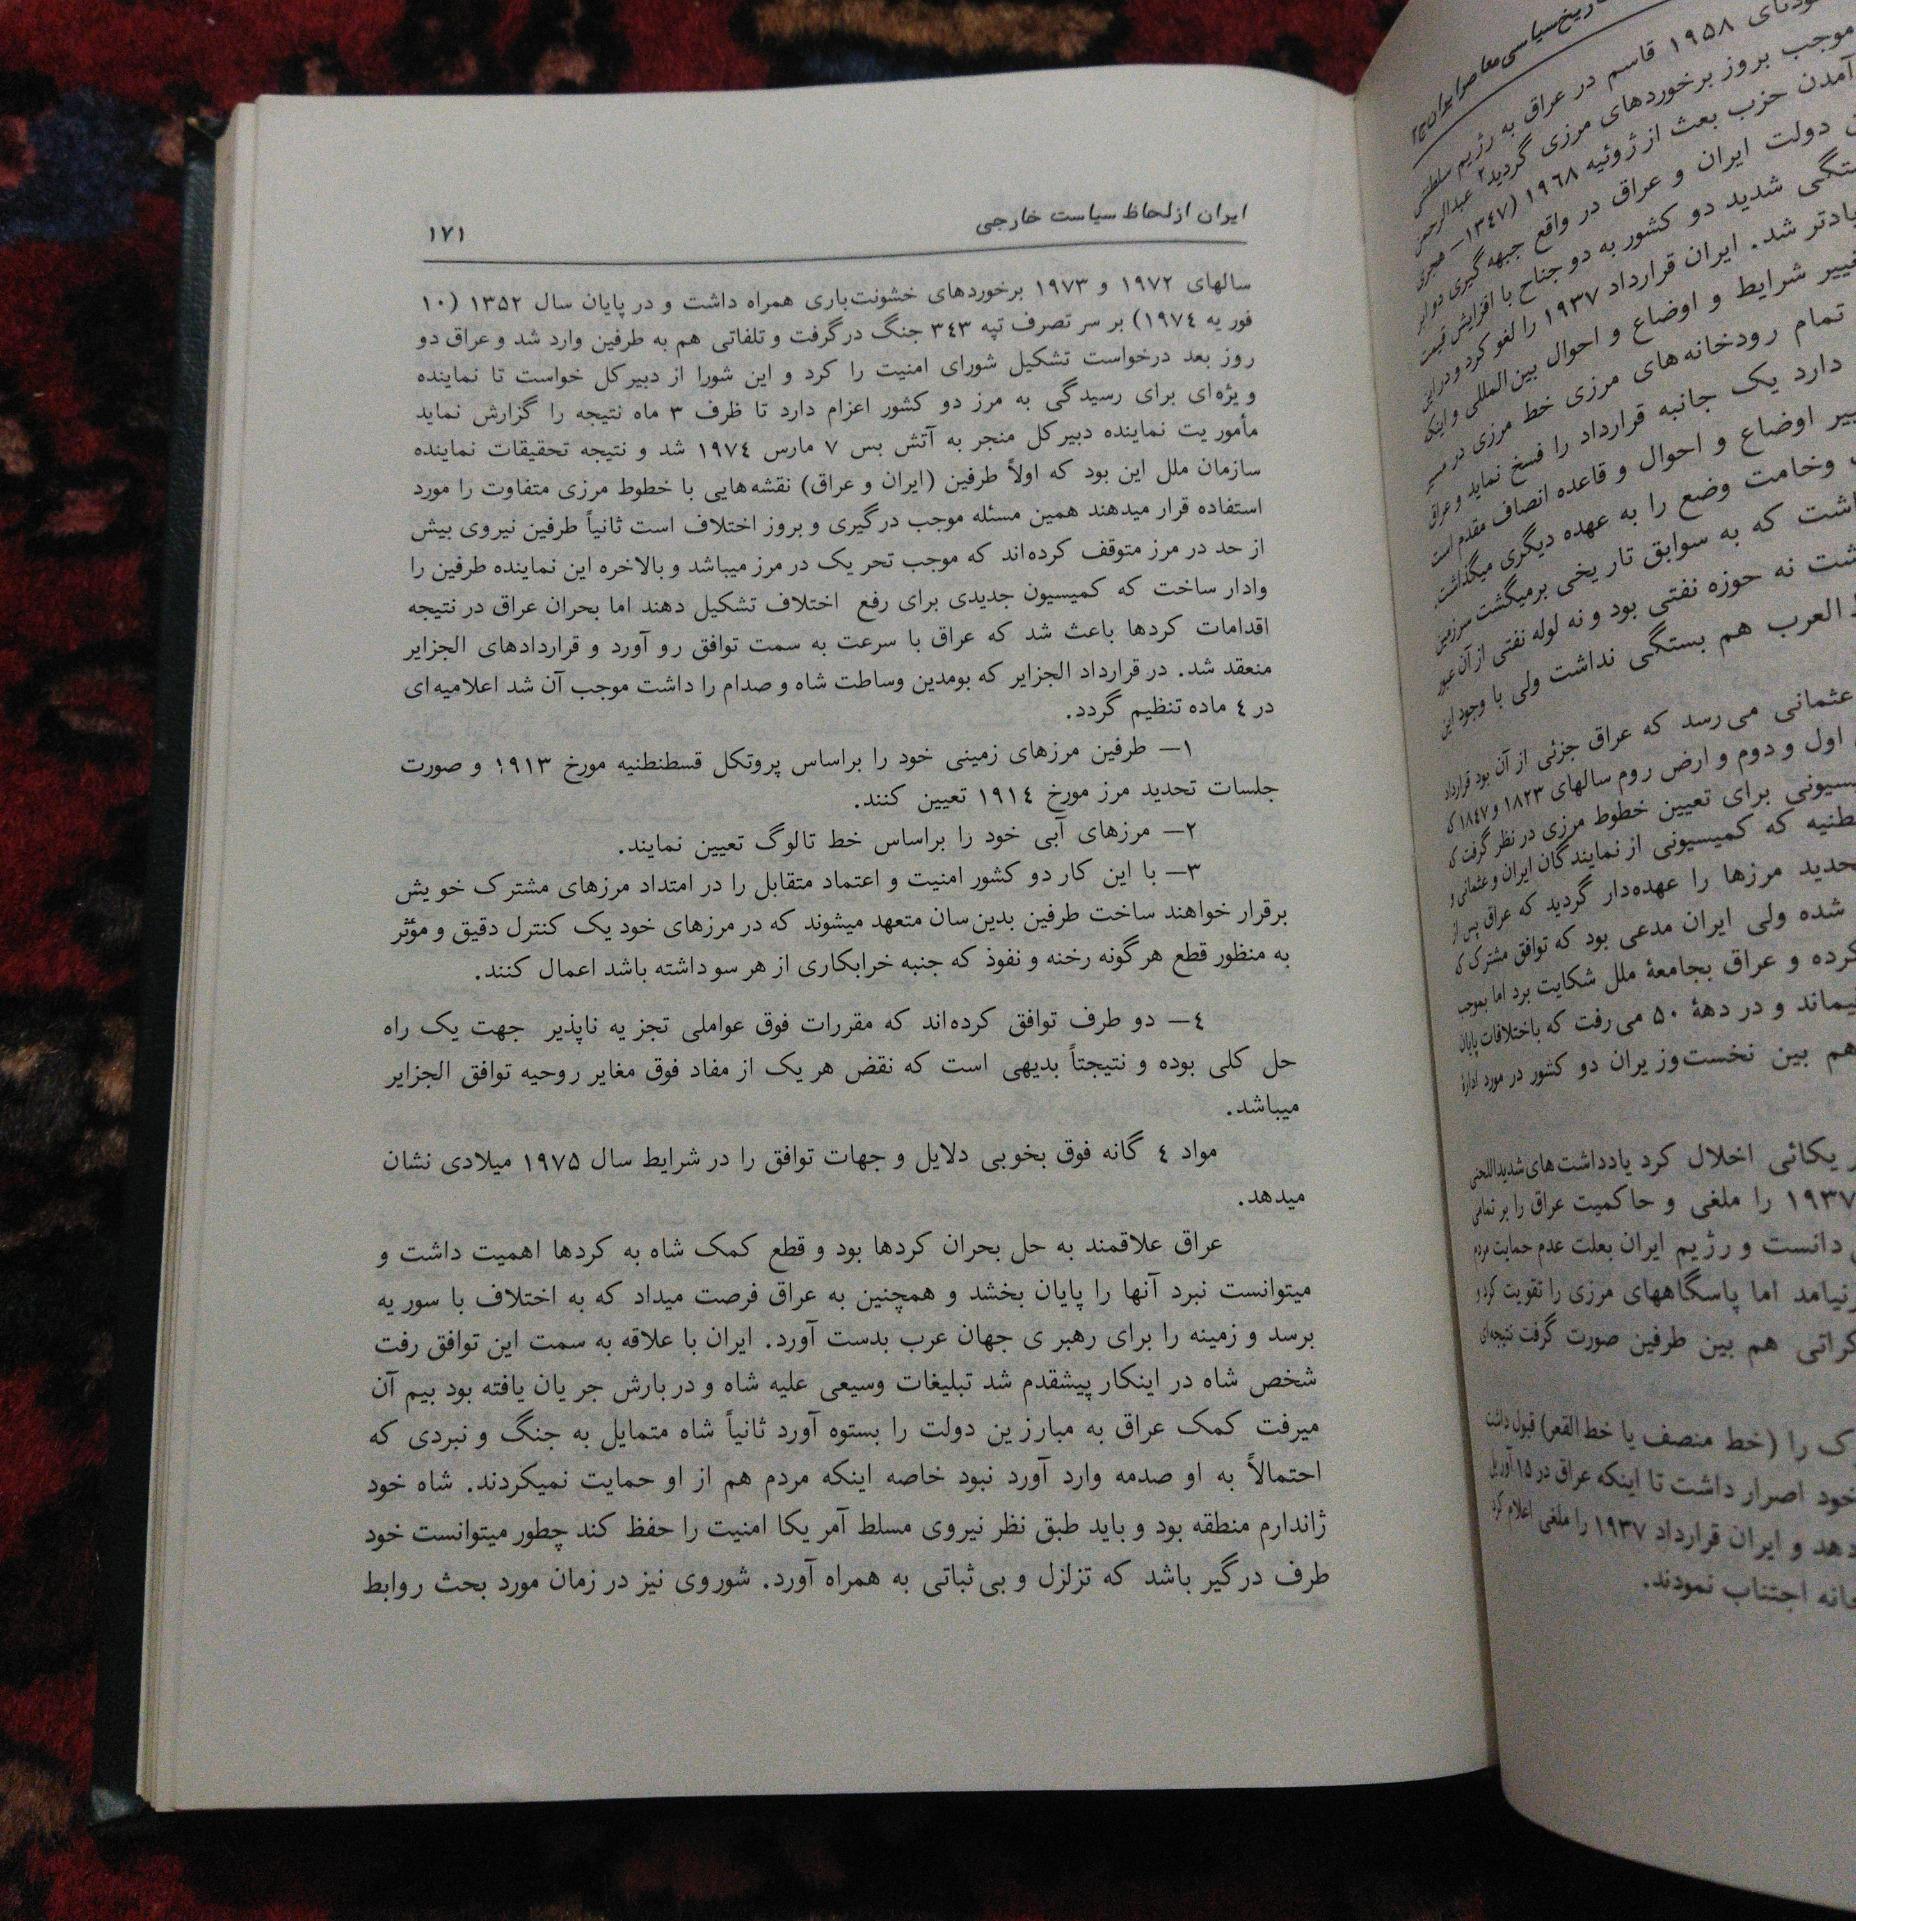 ایران از لحاظ سیاست خارجی ۱۷۱
سالهای ۱۹۷۲ و ۱۹۷۳ برخوردهای خشونت‌باری همراه داشت و در پایان سال ۱۳۵۲ (۱۰
فوریه ۱۹۷٤) بر سر تصرف تپه ۳٤۳ جنگ درگرفت و تلفاتی هم به طرفین وارد شد و عراق دو
روز بعد درخواست تشکیل شورای امنیت را کرد و این شورا از دبیرکل خواست تا نماینده
ویژه‌ای برای رسیدگی به مرز دو کشور اعزام دارد تا ظرف ۳ ماه نتیجه را گزارش نماید
مأموریت نماینده دبیرکل منجر به آتش بس ۷ مارس ۱۹۷٤ شد و نتیجه تحقیقات نماینده
سازمان ملل این بود که اولاً طرفین (ایران و عراق) نقشه‌هایی با خطوط مرزی متفاوت را مورد
استفاده قرار میدهند همین مسئله موجب درگیری و بروز اختلاف است ثانیاً طرفین نیروی بیش
از حد در مرز متوقف کرده‌اند که موجب تحریک در مرز میباشد و بالاخره این نماینده طرفین را
وادار ساخت که کمیسیون جدیدی برای رفع اختلاف تشکیل دهند اما بحران عراق در نتیجه
اقدامات کردها باعث شد که عراق با سرعت به سمت توافق رو آورد و قراردادهای الجزایر
منعقد شد. در قرارداد الجزایر که بومدین وساطت شاه و صدام را داشت موجب آن شد اعلامیه‌ای
در ٤ ماده تنظیم گردد.
۱— طرفین مرزهای زمینی خود را براساس پروتکل قسطنطنیه مورخ ۱۹۱۳ و صورت
جلسات تحدید مرز مورخ ۱۹۱٤ تعیین کنند.
۲— مرزهای آبی خود را براساس خط تالوگ تعیین نمایند.
۳— با این کار دو کشور امنیت و اعتماد متقابل را در امتداد مرزهای مشترک خویش
برقرار خواهند ساخت طرفین بدین‌سان متعهد میشوند که در مرزهای خود یک کنترل دقیق و مؤثر
به منظور قطع هرگونه رخنه و نفوذ که جنبه خرابکاری از هر سو داشته باشد اعمال کنند.
٤— دو طرف توافق کرده‌اند که مقررات فوق عواملی تجزیه ناپذیر جهت یک راه
حل کلی بوده و نتیجتاً بدیهی است که نقض هر یک از مفاد فوق مغایر روحیه توافق الجزایر
میباشد.
مواد ٤ گانه فوق بخوبی دلایل و جهات توافق را در شرایط سال ۱۹۷۵ میلادی نشان
میدهد.
عراق علاقمند به حل بحران کردها بود و قطع کمک شاه به کردها اهمیت داشت و
میتوانست نبرد آنها را پایان بخشد و همچنین به عراق فرصت میداد که به اختلاف با سوریه
برسد و زمینه را برای رهبری جهان عرب بدست آورد. ایران با علاقه به سمت این توافق رفت
شخص شاه در اینکار پیشقدم شد تبلیغات وسیعی علیه شاه و دربارش جریان یافته بود بیم آن
میرفت کمک عراق به مبارزین دولت را بستوه آورد ثانیاً شاه متمایل به جنگ و نبردی که
احتمالاً به او صدمه وارد آورد نبود خاصه اینکه مردم هم از او حمایت نمیکردند. شاه خود
ژاندارم منطقه بود و باید طبق نظر نیروی مسلط آمریکا امنیت را حفظ کند چطور میتوانست خود
طرف درگیر باشد که تزلزل و بی‌ثباتی به همراه آورد. شوروی نیز در زمان مورد بحث روابط
۱۹۵۸ قاسم در عراق به رژیم سلطنتی
موجب بروز برخوردهای مرزی گردید۲ عبدالرحمن
آمدن حزب بعث از ژوئیه ۱۹٦۸ (۱۳٤۷— هجری
دولت ایران و عراق در واقع جبهه‌گیری دو ابر
شدید دو کشور به دو جناح با افزایش قیمت
شد. ایران قرارداد ۱۹۳۷ را لغو کرد و در این
شرایط و اوضاع و احوال بین‌المللی و اینکه
تمام رودخانه‌های مرزی خط مرزی در مسیر
دارد یک جانبه قرارداد را فسخ نماید و عراق
اوضاع و احوال و قاعده انصاف مقدم است
وخامت وضع را به عهده دیگری میگذاشت.
که به سوابق تاریخی برمیگشت سرزمین
نه حوزه نفتی بود و نه لوله نفتی از آن عبور
العرب هم بستگی نداشت ولی با وجود این
عثمانی می‌رسد که عراق جزئی از آن بود قرارداد
اول و دوم و ارض روم سالهای ۱۸۲۳ و ۱۸٤۷ که
برای تعیین خطوط مرزی در نظر گرفت که
که کمیسیونی از نمایندگان ایران و عثمانی و
مرزها را عهده‌دار گردید که عراق پس از
شده ولی ایران مدعی بود که توافق مشترک که
کرده و عراق بجامعهٔ ملل شکایت برد اما بموجب
و در دههٔ ۵۰ می‌رفت که با اختلافات پایان
هم بین نخست‌وزیران دو کشور در مورد ادارهٔ
اخلال کرد یادداشت‌های شدیداللحنی
۱۹۳۷ را ملغی و حاکمیت عراق را بر تمامی
دانست و رژیم ایران بعلت عدم حمایت مردم
اما پاسگاههای مرزی را تقویت کرد و
هم بین طرفین صورت گرفت نتیجه‌ای
را (خط منصف یا خط القعر) قبول داشت
خود اصرار داشت تا اینکه عراق در ۱۵ آوریل
و ایران قرارداد ۱۹۳۷ را ملغی اعلام کرد
اجتناب نمودند.